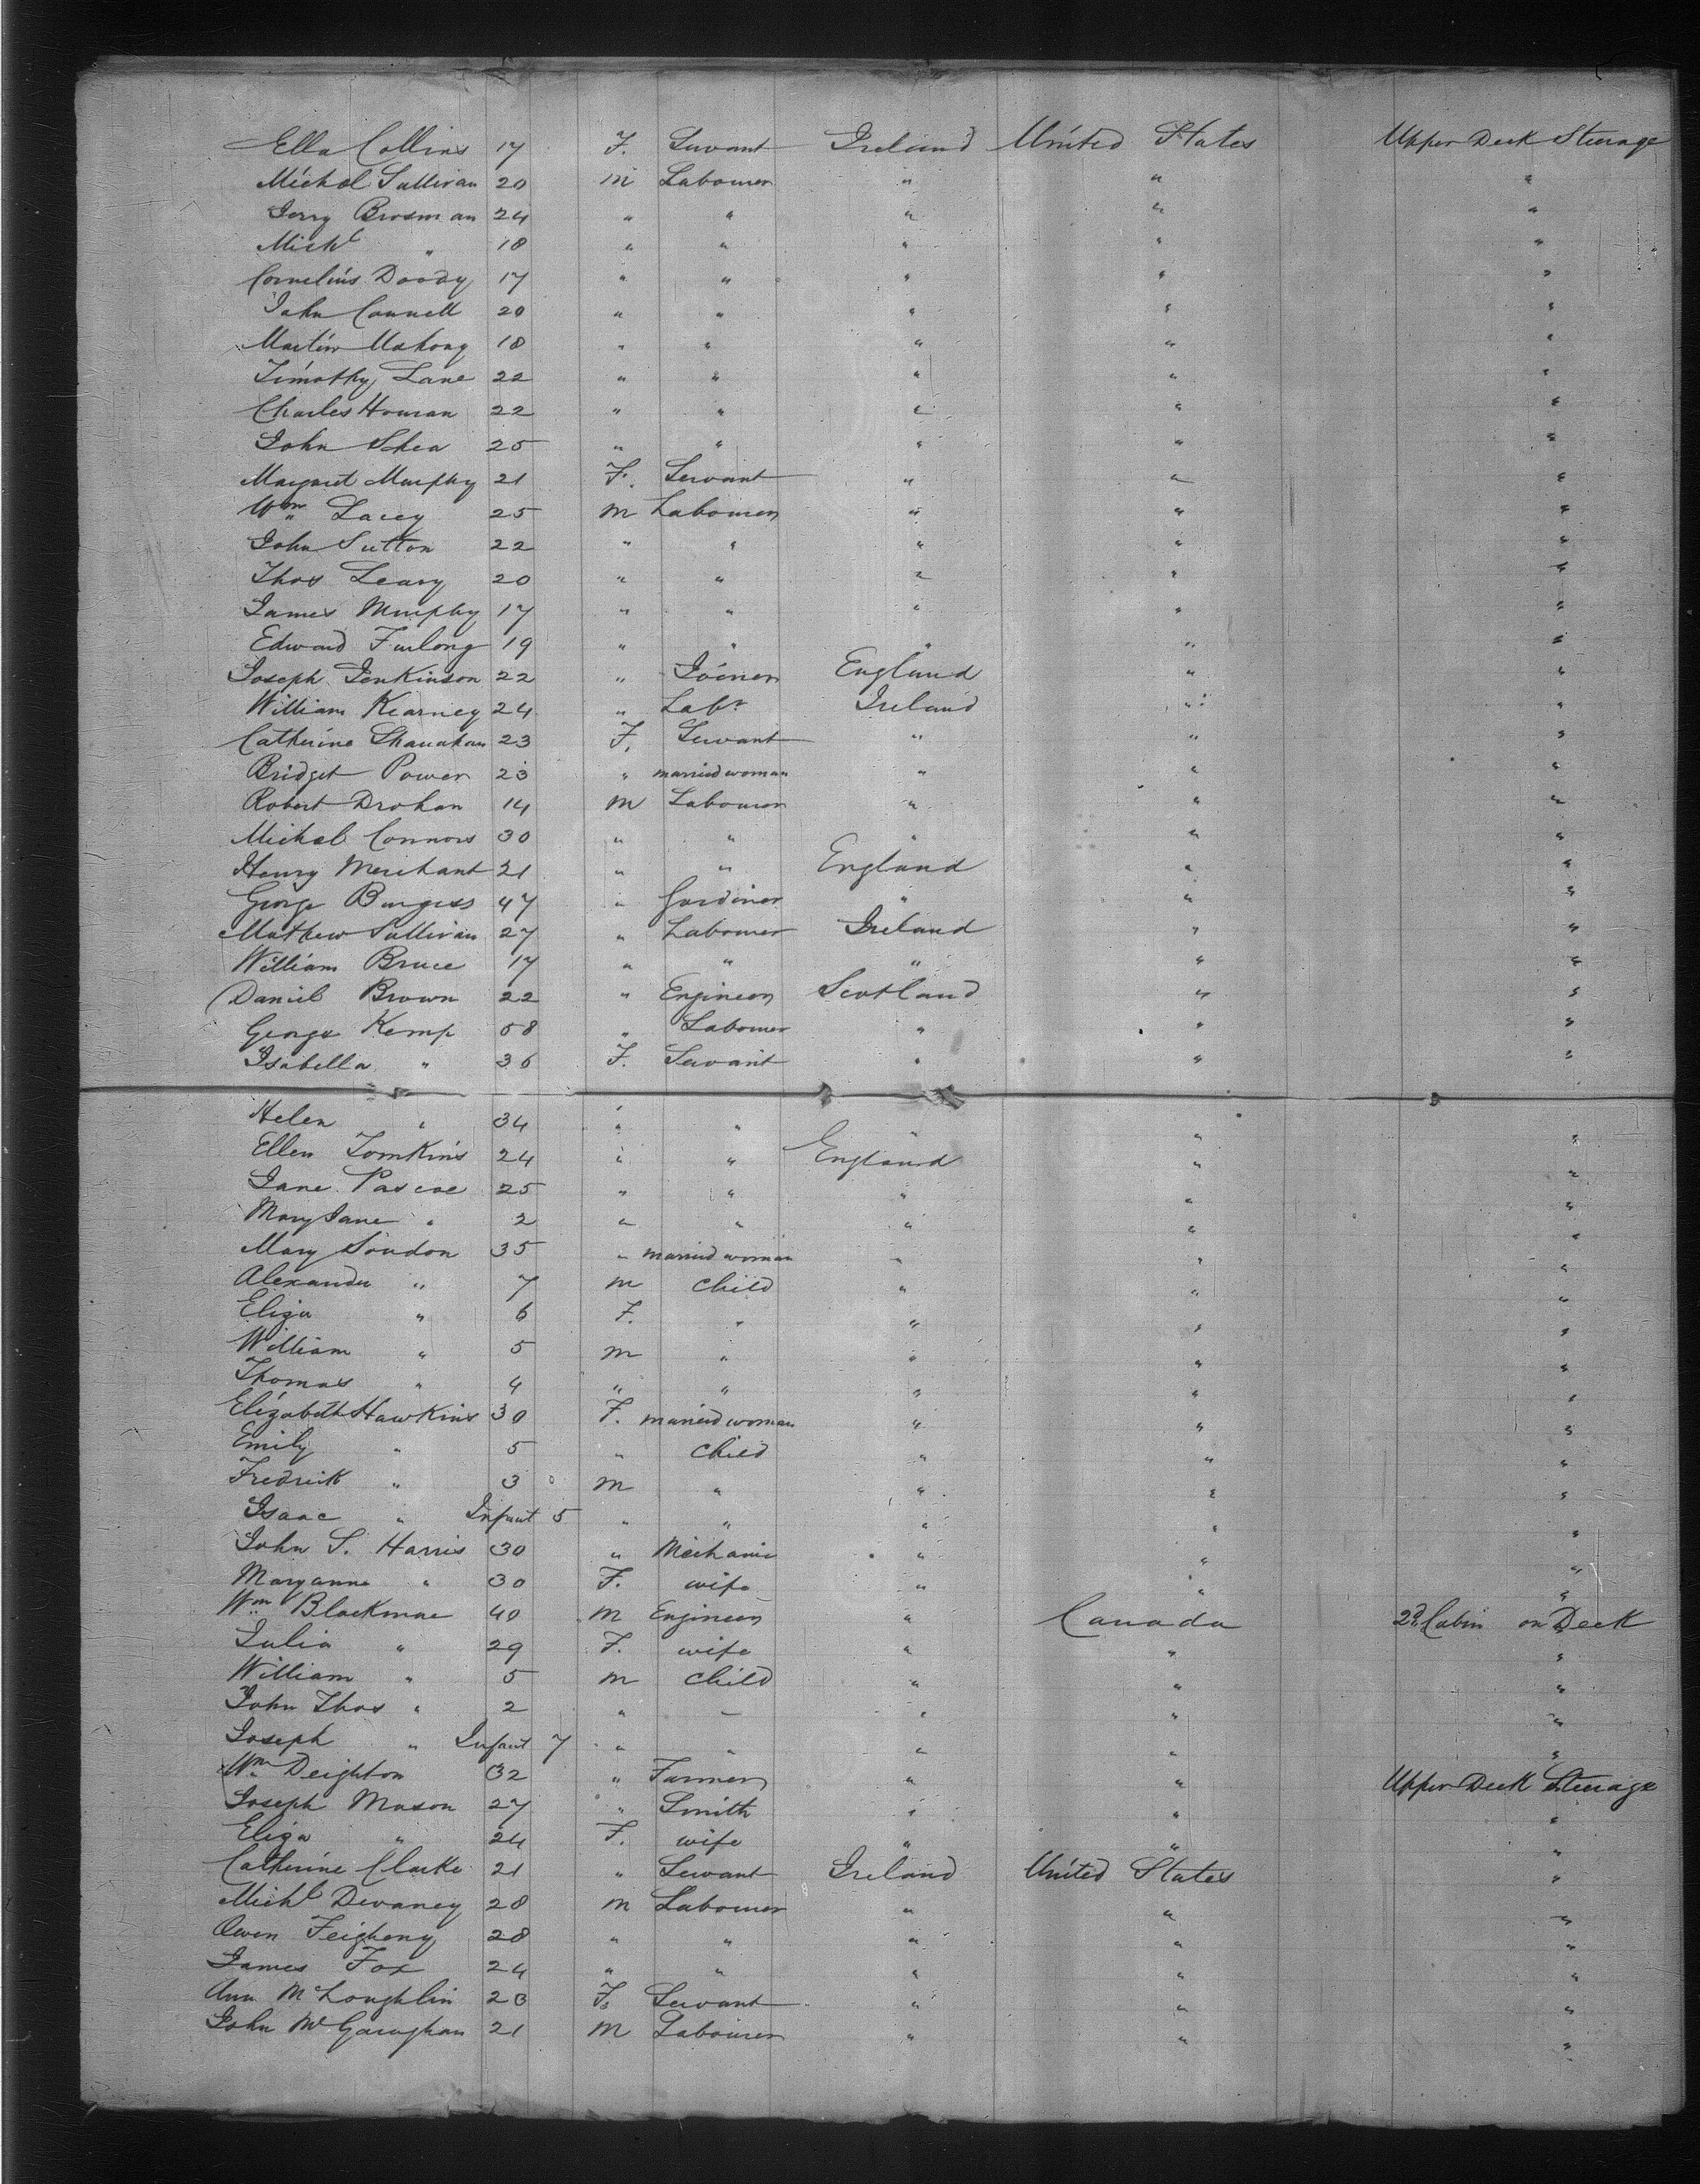 Ella Collins 17 F. Servant Ireland United States Upper Deck Steerage
Michal Sullivan 20 m Labourer " " "
Jerry Brosman 24 " " " " "
Michl " 18 " " " " "
Cornelius Doody 17 " " " " "
John Connell 20 " " " " "
Martin Mahony 18 " " " " "
Timothy Lane 22 " " " " "
Charles Houran 22 " " " " "
John Shea 25 " " " " "
Margaret Murphy 21 F. Servant " " "
Wm Lacey 25 m Labourer " " "
John Sutton 22 " " " " "
Thos Leary 20 " " " " "
James Murphy 17 " " " " "
Edward Furlong 19 " " " " "
Joseph Jenkinson 22 " Joiner England " "
William Kearney 24 " Labr Ireland " "
Catherine Shanahan 23 F. Servant " " "
Bridget Power 23 " married woman " " "
Robert Drohan 14 m Labourer " " "
Michal Connors 30 " " " " "
Henry Merchant 21 " " England " "
George Burgess 47 " Gardiner " " "
Mathew Sullivan 27 " Labourer Ireland " "
William Bruce 17 " " " " "
Daniel Brown 22 " Engineer Scotland " "
George Kemp 58 " Labourer " " "
Isabella " 36 F. Servant " " "
Helen " 34 " " " " "
Ellen Tomkins 24 " " England " "
Jane Pascoe 25 " " " " "
Mary Jane " 2 " " " " "
Mary Soudon 35 " married woman " " "
Alexander " 7 m child " " "
Eliza " 6 F. " " " "
William " 5 m " " " "
Thomas " 4 " " " " "
Elizabeth Hawkins 30 F. married woman " " "
Emily " 5 " child " " "
Fredrick " 3 m " " " "
Isaac " Infant 5 " " " " "
John S. Harris 30 " Mechanic " " "
Maryanne " 30 F. wife " " "
Wm Blackmae 40 m Engineer " Canada 2d Cabin on Deck
Julia " 29 F. wife " " "
William " 5 m child " " "
John Thos " 2 " — " " "
Joseph " Infant 7 " " " " "
Wm Deighton 32 " Farmer " " Upper Deck Steerage
Joseph Mason 27 " Smith " " "
Eliza " 24 F. wife " " "
Catherine Clarke 21 " Servant Ireland United States "
Michl Devaney 28 m Labourer " " "
Owen Feigheny 28 " " " " "
James Fox 24 " " " " "
Ann McLoughlin 20 F. Servant " " "
John McGaraghan 21 m Labourer " " "